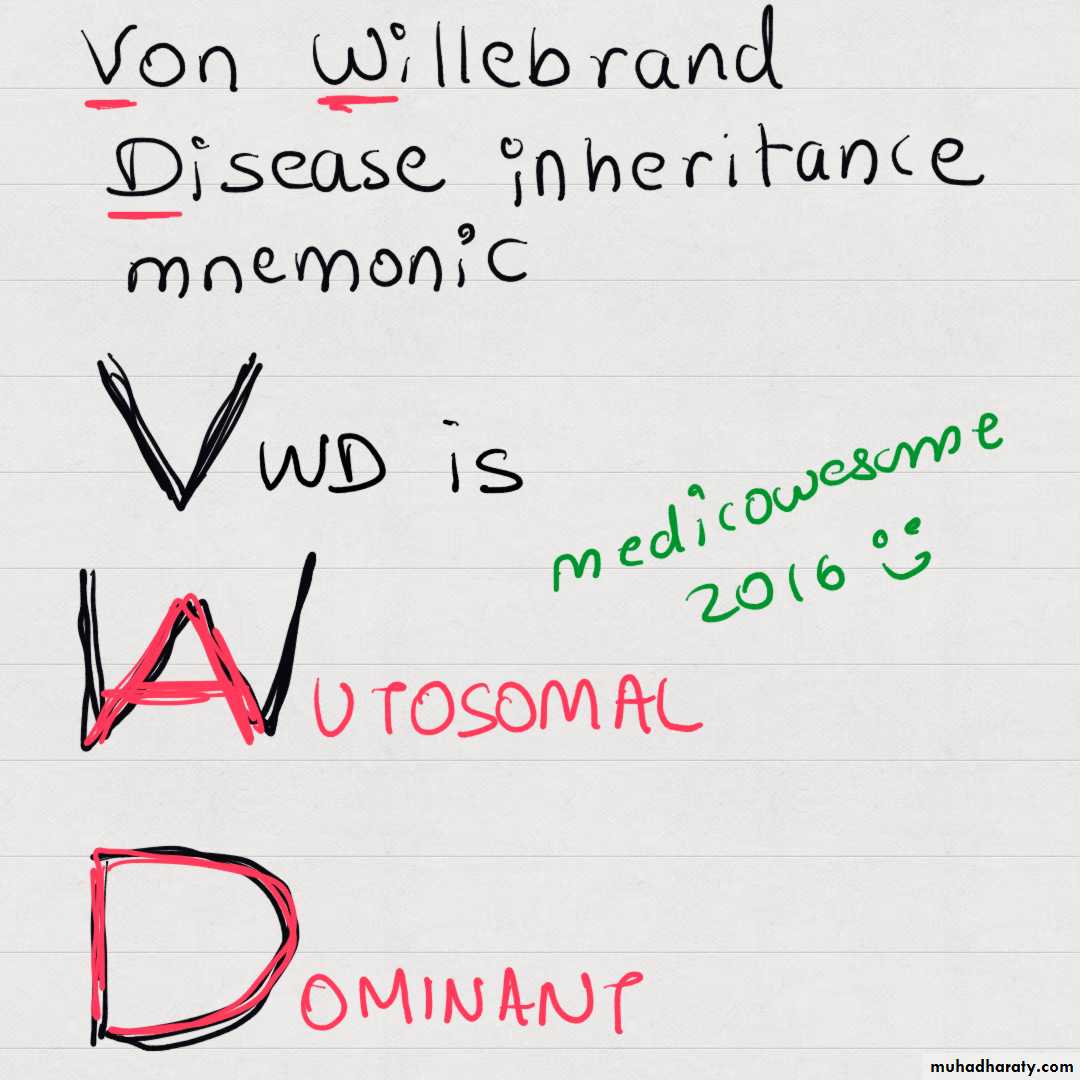 Von Willebrand
Disease inheritance
mnemonic
VWD is
medicowesome
2016
WAUTOSOMAL
DOMINANT
muhadharaty.com